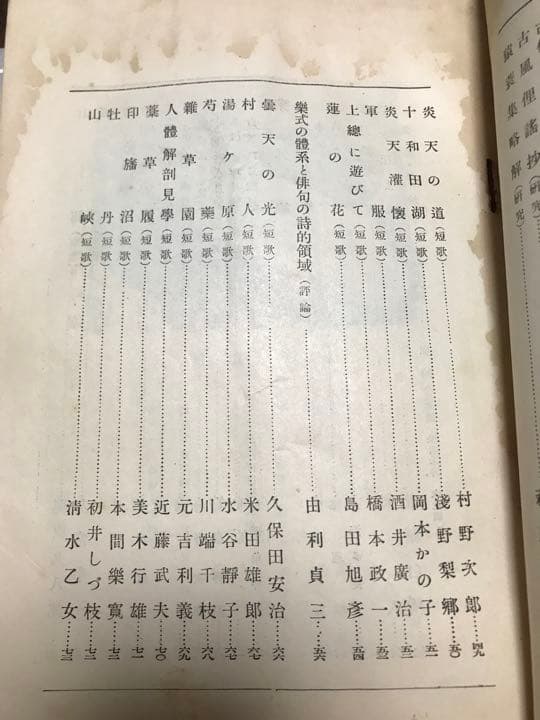 古風俚謠抄(研究)
猿蓑集略解(研究)
炎天の道(短歌)……村野次郎……四九
十和田湖(短歌)……淺野梨郷……五〇
炎天灌懷(短歌)……岡本かの子……五一
軍服(短歌)……酒井廣治……五二
上總に遊びて(短歌)……橋本政一……五三
蓮の花(短歌)……島田旭彥……五四
樂式の體系と俳句の詩的領域(評論)……由利貞三……五六
曇天の光(短歌)……久保田安治……六六
村人(短歌)……米田雄郎……六七
湯ヶ原(短歌)……水谷靜子……六七
芍藥(短歌)……川端千枝……六八
雜草園(短歌)……元吉利義……六九
人體解剖見學(短歌)……近藤武夫……七〇
藁草履(短歌)……美木行雄……七一
印旛沼(短歌)……本間樂寬……七一
牡丹(短歌)……初井しづ枝……七二
山峽(短歌)……清水乙女……七三